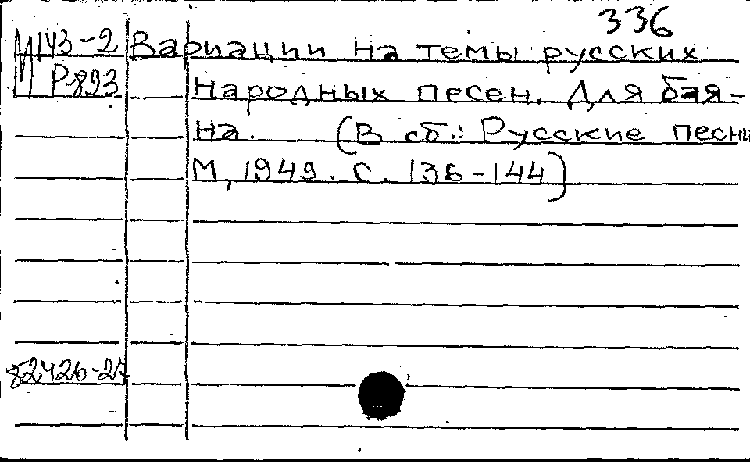 336
М143-2 Вариации на темы русских
Р893 народных песен. Для бая-
на. (В сб.: Русские песни
М, 1949. с. 136-144)